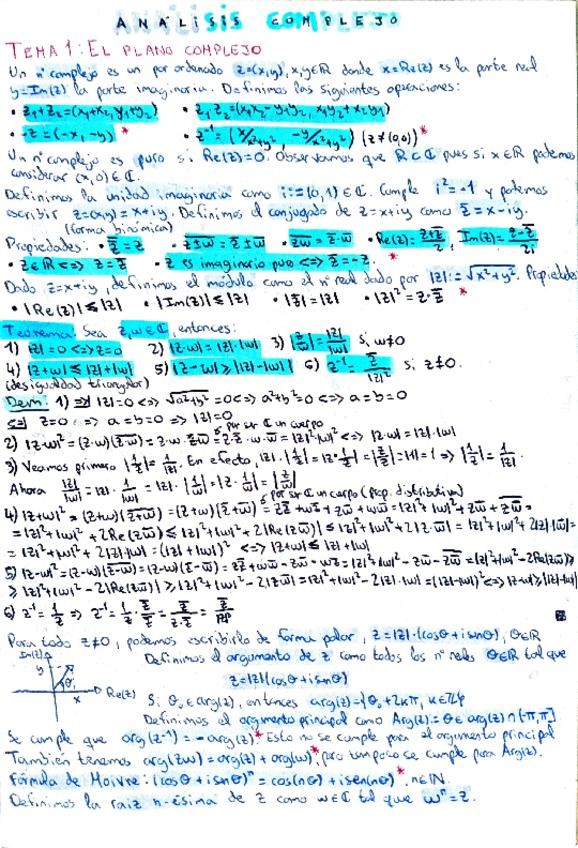 ANÁLISIS COMPLEJO
TEMA 1: EL PLANO COMPLEJO
Un nº complejo es un par ordenado z=(x,y), x,y∈R donde x=Re(z) es la parte real
y=Im(z) la parte imaginaria. Definimos las siguientes operaciones:
• z₁+z₂=(x₁+x₂, y₁+y₂) • z₁z₂=(x₁x₂-y₁y₂, x₁y₂+x₂y₁)
• -z=(-x,-y)* • z⁻¹=(x/x²+y², -y/x²+y²) (z≠(0,0))*
Un nº complejo es puro si Re(z)=0. Observamos que R⊂ℂ pues si x∈R podemos
considerar (x,0)∈ℂ.
Definimos la unidad imaginaria como i:=(0,1)∈ℂ. Cumple i²=-1 y podemos
escribir z=(x,y)=x+iy. Definimos el conjugado de z=x+iy como z̄=x-iy.
(forma binómica)
Propiedades: • z̿=z • z±w‾=z̄±w̄ • zw‾=z̄·w̄ • Re(z)=z+z̄/2, Im(z)=z-z̄/2i
• z∈R<=>z=z̄ • z es imaginario puro <=> z̄=-z. *
Dado z=x+iy, definimos el módulo como el nº real dado por |z|:=√x²+y². Propiedades:
• |Re(z)|≤|z| • |Im(z)|≤|z| • |z̄|=|z| • |z|²=z·z̄ *
Teorema. Sea z,w∈ℂ, entonces:
1) |z|=0<=>z=0 2) |z·w|=|z|·|w| 3) |z/w|=|z|/|w| si w≠0
4) |z+w|≤|z|+|w| 5) |z-w|≥||z|-|w|| 6) z⁻¹=z̄/|z|² si z≠0.
(desigualdad triangular)
Dem. 1) =>| |z|=0<=>√a²+b²=0<=>a²+b²=0<=>a=b=0
<=| z=0 <=> a=b=0 => |z|=0
por ser ℂ un cuerpo
2) |z·w|²=(z·w)(z·w‾)=z·w·z̄w̄=z·z̄·w·w̄=|z|²·|w|²<=>|z·w|=|z|·|w|
3) Veamos primero |1/z|=1/|z|. En efecto, |z|·|1/z|=|z·1/z|=|z/z|=|1|=1=>|1/z|=1/|z|.
Ahora |z|/|w|=|z|·1/|w|=|z|·|1/w|=|z·1/w|=|z/w|
por ser ℂ un cuerpo (Prop. distributiva)
4) |z+w|²=(z+w)(z+w‾)=(z+w)(z̄+w̄)=zz̄+wz̄+zw̄+ww̄=|z|²+|w|²+zw̄+zw̄‾=
=|z|²+|w|²+2Re(zw̄)≤|z|²+|w|²+2|Re(zw̄)|≤|z|²+|w|²+2|z·w̄|=|z|²+|w|²+2|z||w̄|=
=|z|²+|w|²+2|z|·|w|=(|z|+|w|)²<=>|z+w|≤|z|+|w|
5) |z-w|²=(z-w)(z-w‾)=(z-w)(z̄-w̄)=zz̄+ww̄-zw̄-wz̄=|z|²+|w|²-zw̄-zw̄‾=|z|²+|w|²-2Re(zw̄)≥
≥|z|²+|w|²-2|Re(zw̄)|≥|z|²+|w|²-2|zw̄|=|z|²+|w|²-2|z|·|w|=(|z|-|w|)²<=>|z-w|≥||z|-|w||
6) z⁻¹=1/z => z⁻¹=1/z·z̄/z̄=z̄/z·z̄=z̄/|z|²
Para todo z≠0, podemos escribirlo de forma polar, z=|z|·(cosθ+isenθ), θ∈R
Im(z) Definimos el argumento de z como todos los nº reales θ∈R tal que
z=|z|(cosθ+isenθ)
y θ x Re(z) Si θ₀∈arg(z), entonces arg(z)={θ₀+2kπ, k∈ℤ}
Definimos el argumento principal como Arg(z)=θ∈arg(z)∩(-π,π]
Se cumple que arg(z⁻¹)=-arg(z)* Esto no se cumple para el argumento principal
También tenemos arg(zw)=arg(z)+arg(w)*, pero tampoco se cumple para Arg(z).
Fórmula de Moivre: (cosθ+isenθ)ⁿ=cos(nθ)+isen(nθ)*, n∈ℕ.
Definimos la raiz n-ésima de z como w∈ℂ tal que wⁿ=z.